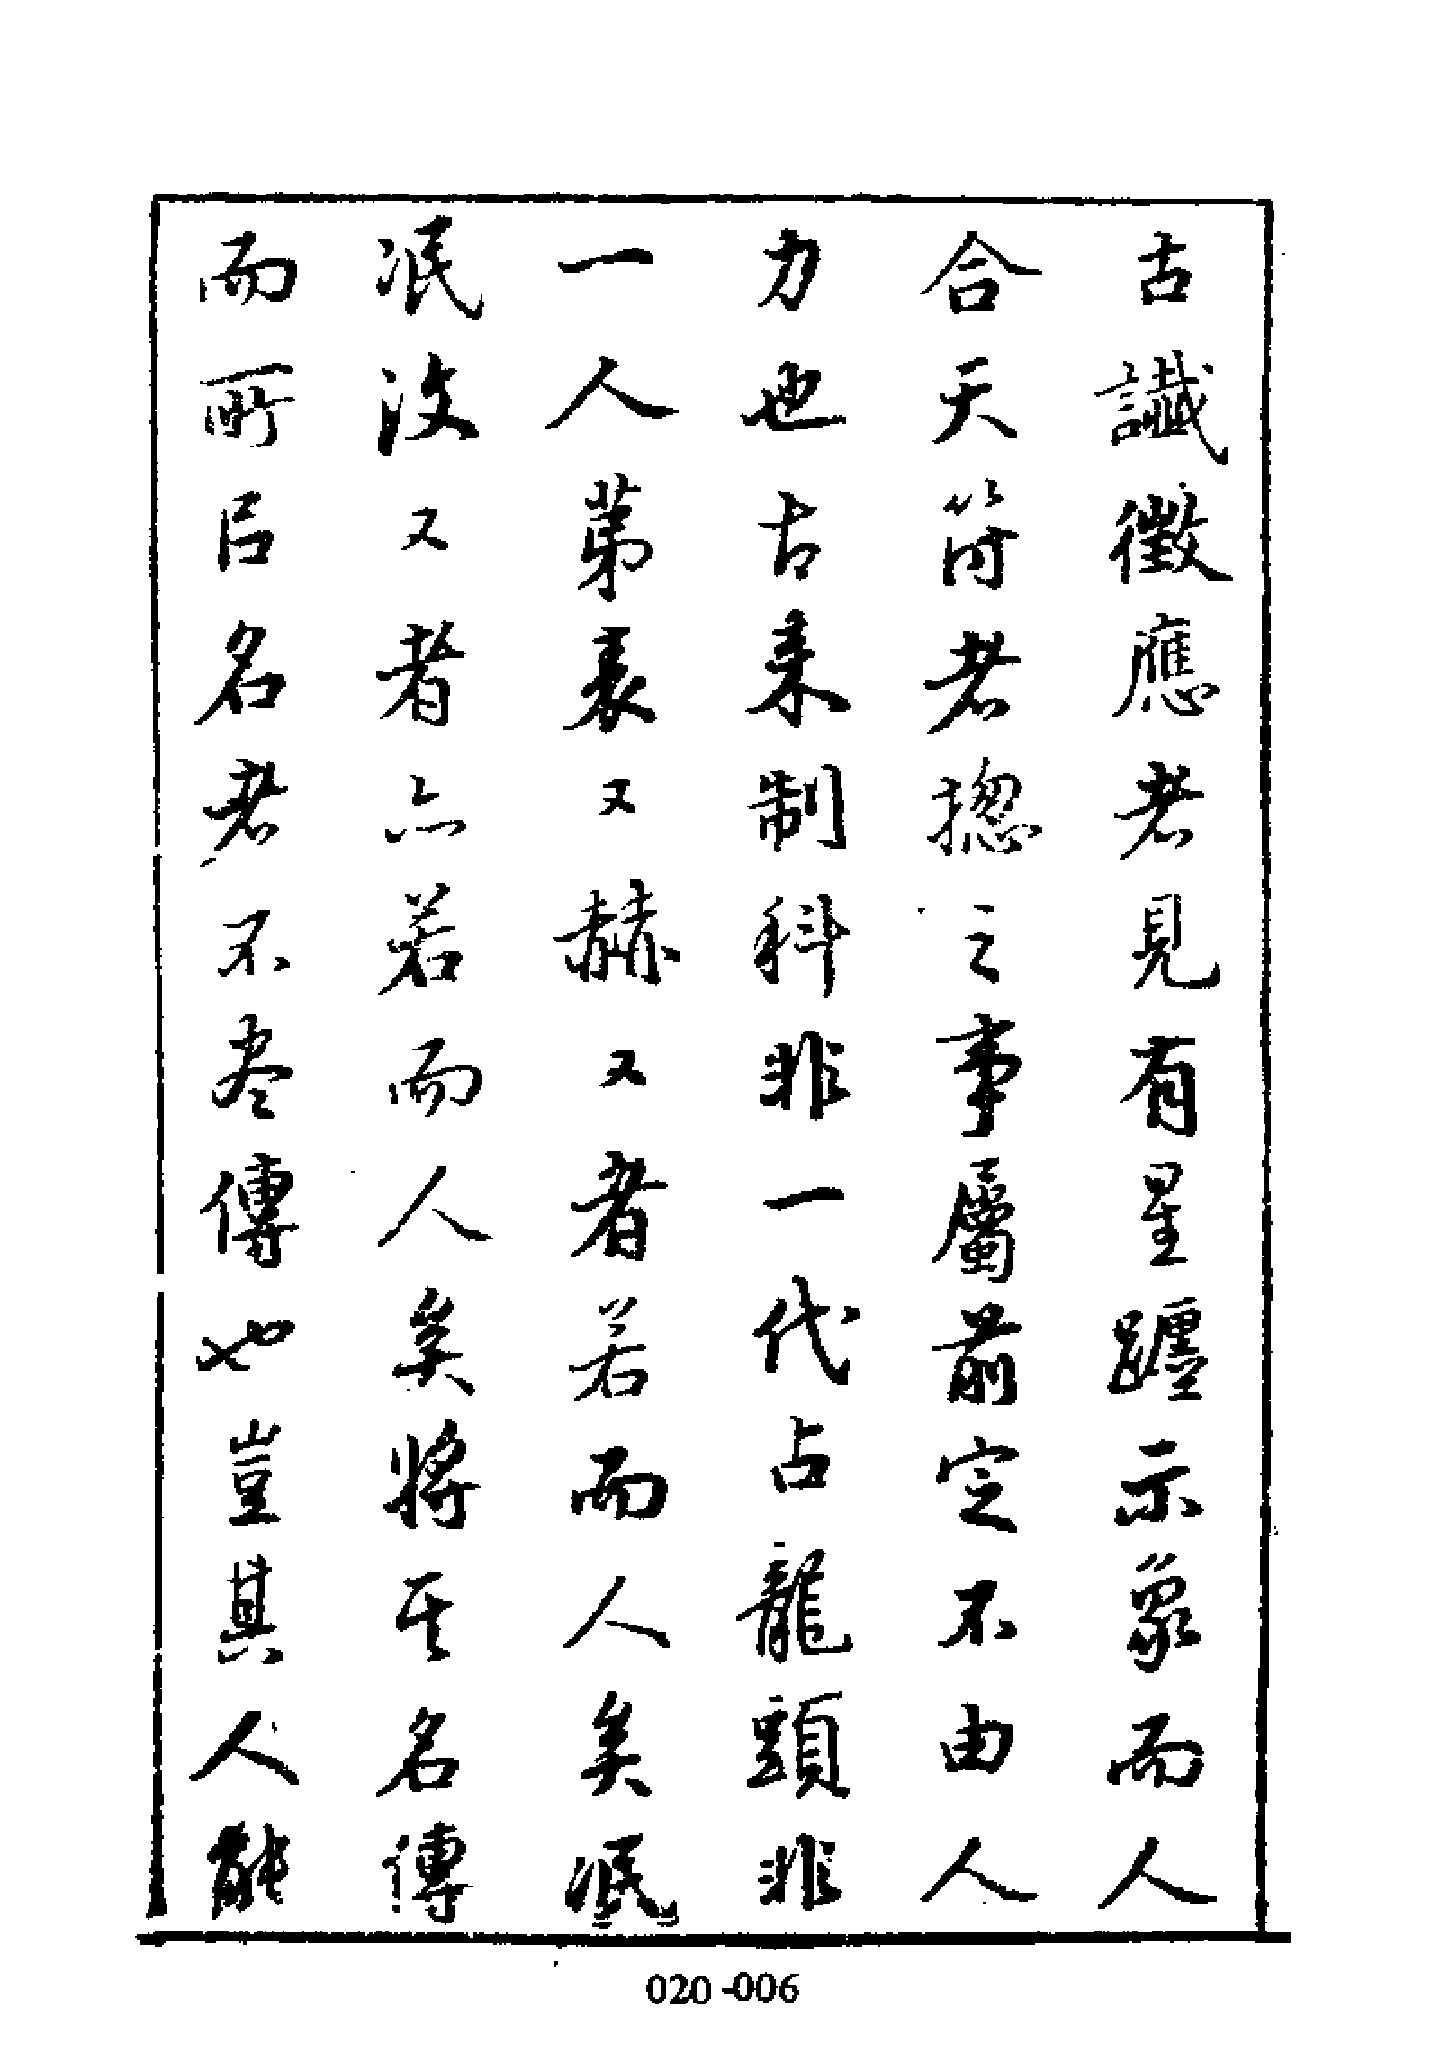 古讖徵應者見有星躔示象而人
合天符者揔之事屬前定不由人
力也古来制科非一代占龍頭非
一人苐表又赫又者若而人矣泯
泯没又者亦若而人矣將其名傳
而所㠯名者不尽傳也豈其人能
020-006